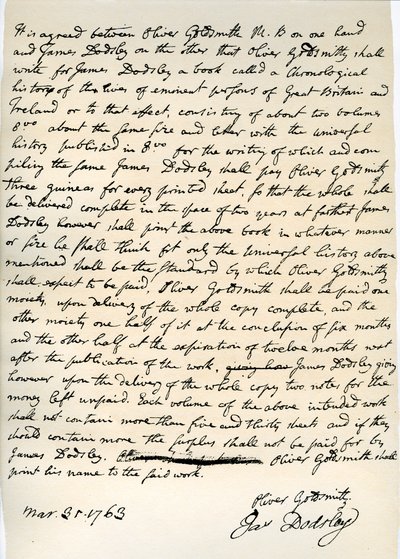 It is agreed between Oliver Goldsmith M. B on one hand
and James Dodsley on the other that Oliver Goldsmith shall
write for James Dodsley a book called a Chronological
history of the lives of eminent persons of Great Britain and
Ireland or to that effect, consisting of about two volumes
8vo about the same size and letter with the universal
history published in 8vo for the writing of which and com
piling the same James Dodsley shall pay Oliver Goldsmith
three guineas for every printed sheet, so that the whole shall
be delivered complete in the space of two years at farthest James
Dodsley however shall print the above book in whatever manner
or size he shall think fit only the Universal history above
mentioned shall be the standard by which Oliver Goldsmith
shall expect to be paid. Oliver Goldsmith shall be paid one
moiety upon delivery of the whole copy complete, and the
other moiety one half of it at the conclusion of six months
and the other half at the expiration of twelve months next
after the publication of the work, James Dodsley giving
however upon the delivery of the whole copy two notes for the
money left unpaid. Each volume of the above intended work
shall not contain more than five and thirty sheets and if they
should contain more the surplus shall not be paid for by
James Dodsley. Oliver Goldsmith shall
print his name to the said work.
Mar. 31. 1763
Oliver Goldsmith
Jas Dodsley